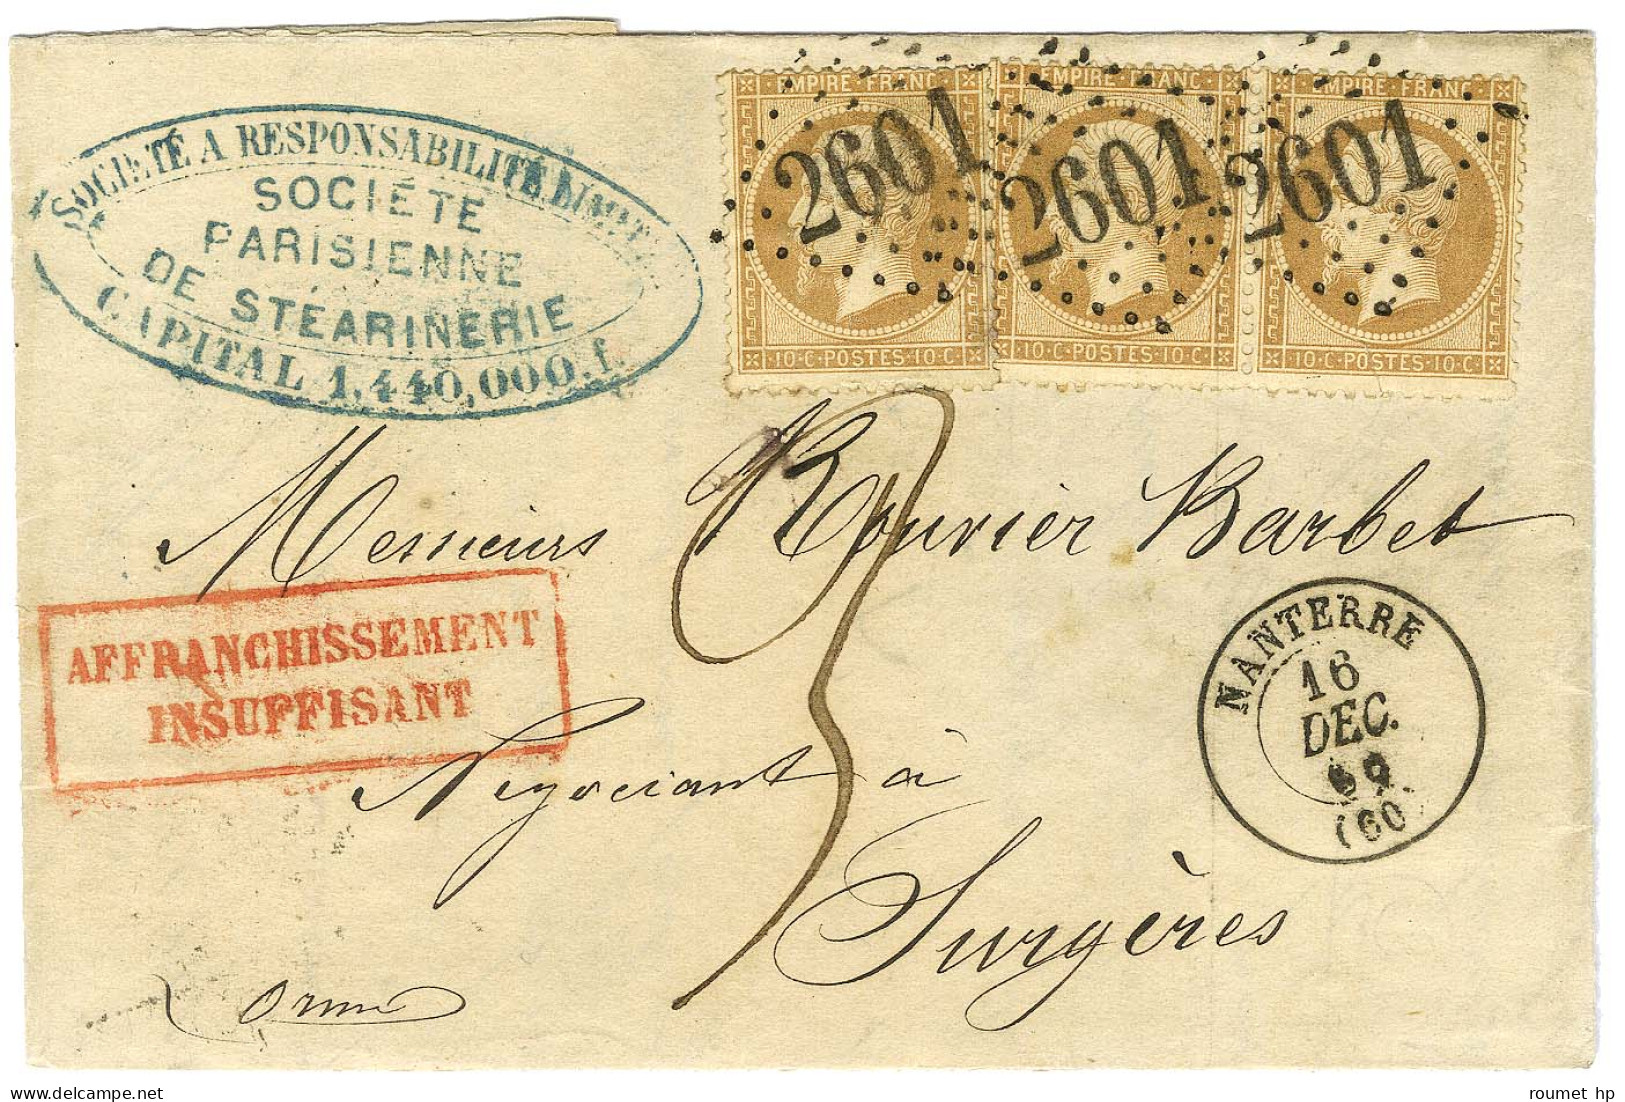 SOCIETÉ A RESPONSABILITÉ LIMITÉE
SOCIÉTÉ
PARISIENNE
DE STÉARINERIE
CAPITAL 1,440,000 f.
EMPIRE FRANC
EMPIRE FRANC
EMPIRE FRANC
2601
2601
2601
10·C·POSTES·10·C
10·C·POSTES·10·C
10·C·POSTES·10·C
Messieurs Rouvier Barbet
AFFRANCHISSEMENT
INSUFFISANT
3
NANTERRE
16
DEC.
69
(60)
Negociant à
Surgères
roumet hp